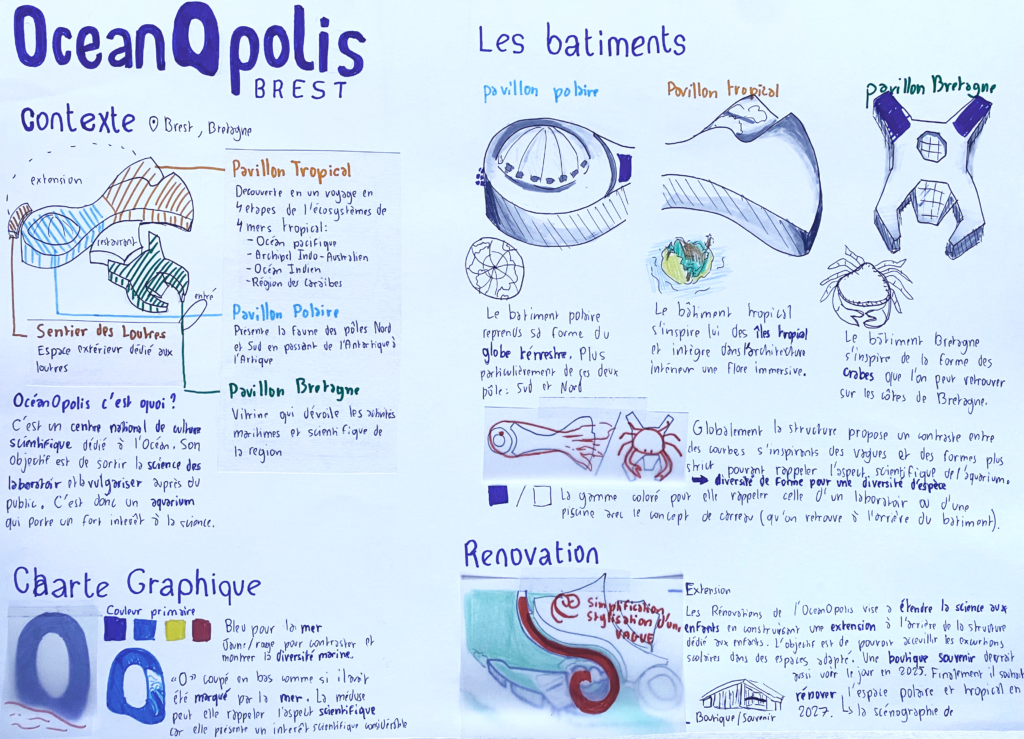 OceanOpolis
BREST
Contexte Brest, Bretagne
extension
restaurant
entré
Pavillon Tropical
Decouverte en un voyage en
4 etapes de l'écosystèmes de
4 mers tropical:
- Océan pacifique
- Archipel Indo-Australien
- Océan Indien
- Région des Caraïbes
Pavillon Polaire
Présente la faune des pôles Nord
et Sud en passant de l'Antartique à
l'Artique
Pavillon Bretagne
Vitrine qui dévoile les activités
maritimes et scientifique de
la region
Sentier des Loutres
Espace extérieur dédié aux
loutres
OcéanOpolis c'est quoi ?
C'est un centre national de culture
scientifique dédié à l'Océan. Son
objectif est de sortir la science des
laboratoir et la vulgariser auprès du
public. C'est donc un aquarium
qui porte un fort interêt à la science.
Charte Graphique
Couleur primaire
Bleu pour la mer
Jaune/rouge pour contraster et
montrer la diversité marine.
"O" coupé en bas comme si il avait
été marqué par la mer. La méduse
peut elle rappeler l'aspect scientifique
car elle présente un interêt scientifique considérable
Les batiments
pavillon polaire
Pavillon tropical
pavillon Bretagne
Le batiment polaire
reprends sa forme du
globe terrestre. Plus
particulièrement de ses deux
pôle: Sud et Nord
Le bâtiment tropical
s'inspire lui des îles tropical
et intègre dans l'architecture
intérieur une flore immersive.
Le bâtiment Bretagne
s'inspire de la forme des
crabes que l'on peut retrouver
sur les côtes de Bretagne.
Globalement la structure propose un contraste entre
des courbes s'inspirants des vagues et des formes plus
strict pouvant rappeler l'aspect scientifique de l'aquarium.
→ diversité de forme pour une diversité d'espèce
/ La gamme coloré peut elle rappeler celle d'un laboratoir ou d'une
piscine avec le concept de carreau (qu'on retrouve à l'arrière du batiment).
Renovation
Simplification
Stylisation d'une
VAGUE
Extension
Les Rénovations de l'OceanOpolis vise a étendre la science aux
enfants en construisant une extension à l'arrière de la structure
dédié aux enfants. L'objectif est de pouvoir acceuillir les excurtions
scolaires dans des espaces adapté. Une boutique souvenir devrait
aussi voir le jour en 2025. Finalement il souhait
rénover l'espace polaire et tropical en
2027. ↳ la scénographie de
- Boutique/Souvenir